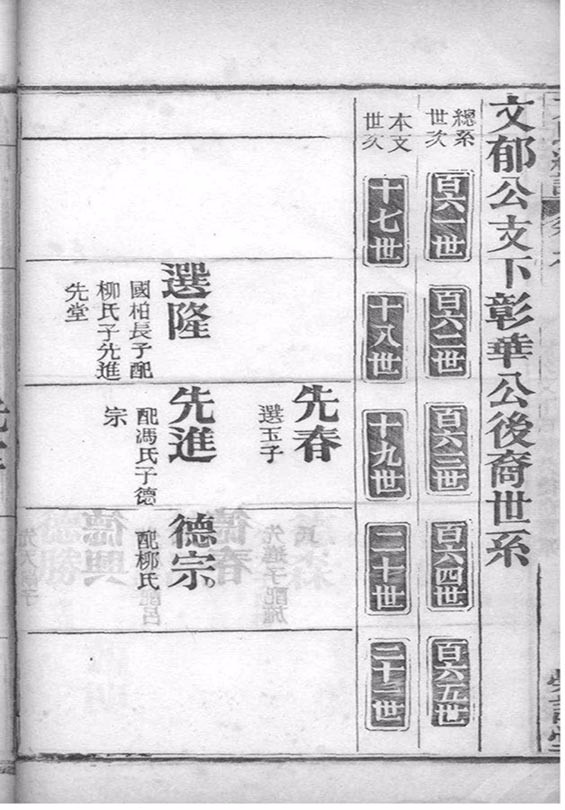 文郁公支下彰華公後裔世系
總系世次
百六一世
百六二世
百六三世
百六四世
百六五世
本支世次
十七世
十八世
十九世
二十世
二十一世
先春
選玉子
選隆
國柏長子配
柳氏子先進
先堂
先進
配馮氏子德
宗
德宗
配柳氏